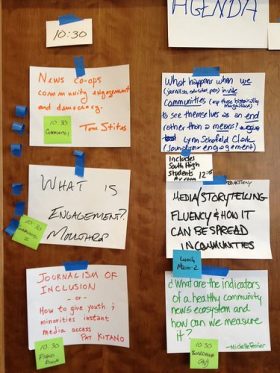 AGENDA
10:30
News co-ops
community engagement
and democracy.
Tom Stites
10:30
What happens when we
invite
communities
to see themselves as an end
rather than a means?
Lynn Schofield Clark
Includes
South High
students
WHAT IS
ENGAGEMENT?
10:30
MEDIA/STORYTELLING
FLUENCY & HOW IT
CAN BE SPREAD
IN COMMUNITIES
Lunch
JOURNALISM OF
INCLUSION
- or -
How to give youth &
minorities instant
media access
PAT KITANO
10:30
¿ What are the indicators
of a healthy community
news ecosystem and
how can we measure
it?
- Michelle Ferrier
10:30